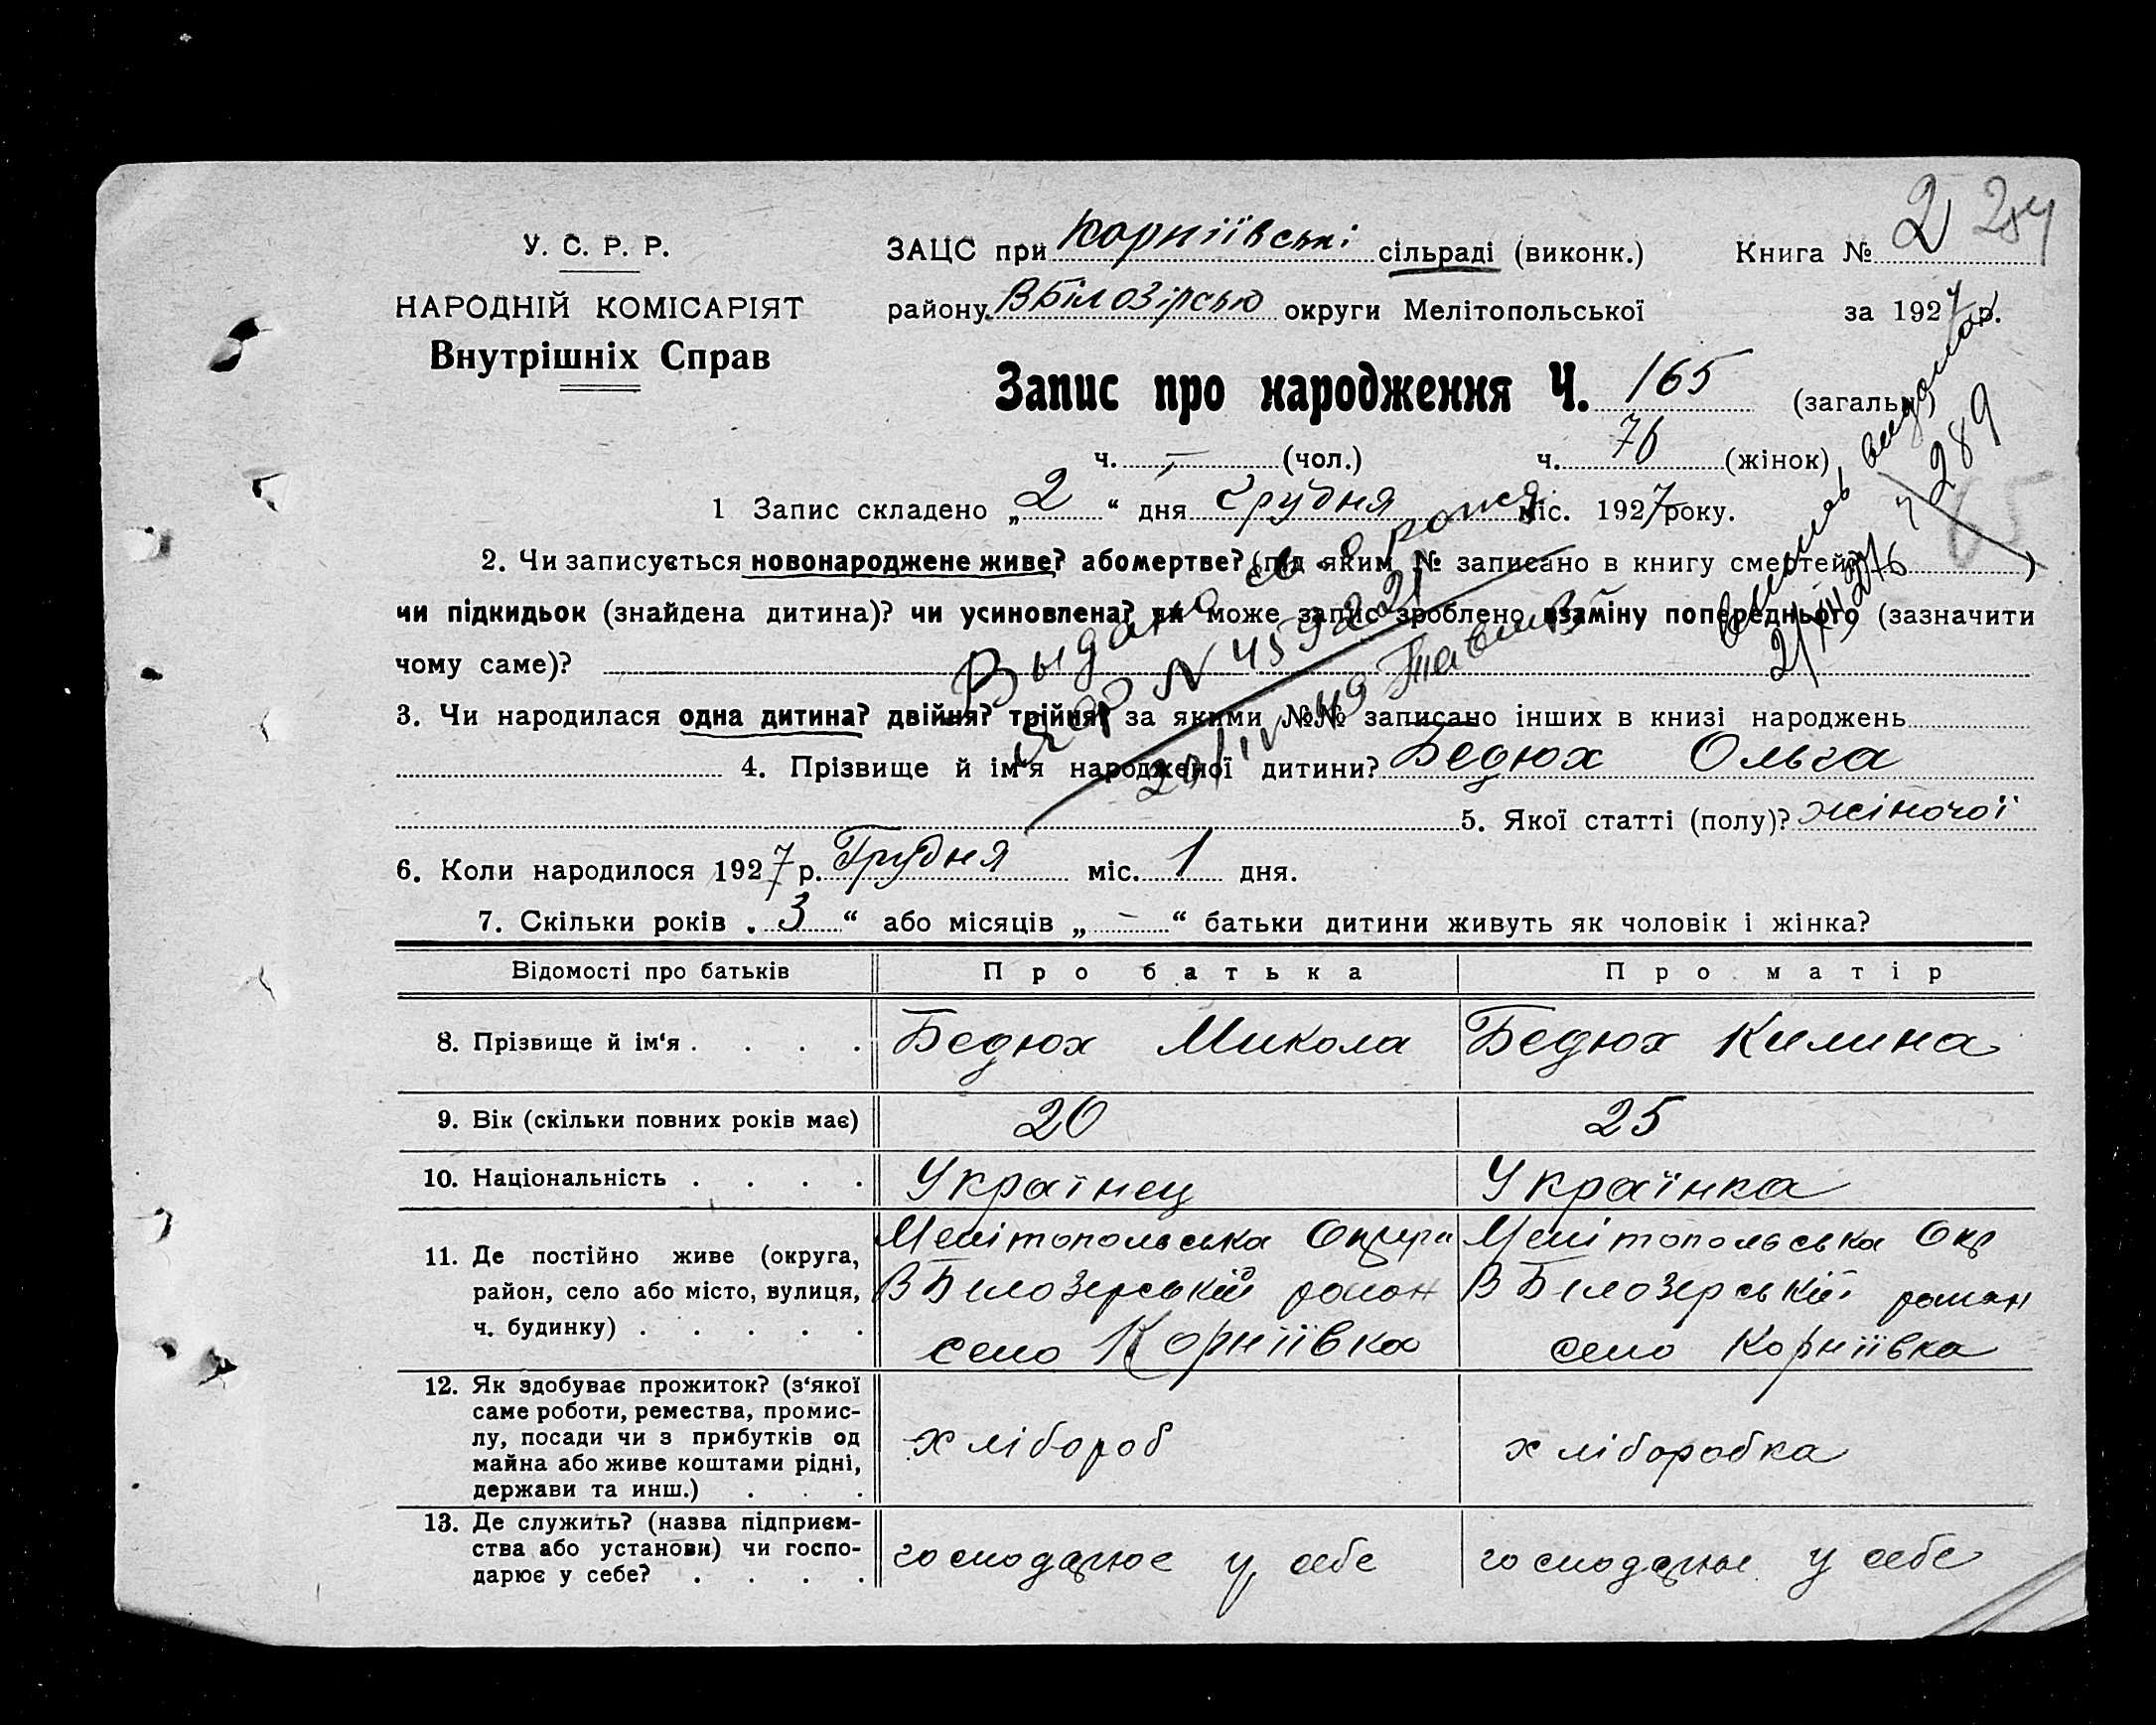 2 284
У. С. Р. Р.
НАРОДНІЙ КОМІСАРІЯТ
Внутрішніх Справ
ЗАЦС при Корніївські сільраді (виконк.) Книга №
району ВБілозірсью округи Мелітопольської за 1927 р.
Запис про народження Ч. 165 (загальн.)
ч. — (чол.) ч. 76 (жінок)
1 Запис складено „2“ дня Грудня міс. 1927 року.
2. Чи записується новонароджене живе? або мертве? (під яким № записано в книгу смертей?)
чи підкидьок (знайдена дитина)? чи усиновлена? чи може запис зроблено взаміну попереднього (зазначити
чому саме)?
3. Чи народилася одна дитина? двійня? трійня? за якими №№ записано інших в книзі народжень
4. Прізвище й ім‘я народженої дитини? Бедюх Ольга
5. Якої статті (полу)? жіночої
6. Коли народилося 1927 р. Грудня міс. 1 дня.
7. Скільки років „3“ або місяців „–“ батьки дитини живуть як чоловік і жінка?
Выдано св. о рожд
N 459221
289
Відомості про батьків Про батька Про матір
8. Прізвище й ім‘я . . . . Бедюх Микола Бедюх Килина
9. Вік (скільки повних років має) 20 25
10. Національність . . . . Українец Українка
11. Де постійно живе (округа, Мелітопольська Округи Мелітопольська Окр
район, село або місто, вулиця, ВБилозерській район ВБілозерській район
ч. будинку) . . . . . село Корніївка село Корніївка
12. Як здобуває прожиток? (з‘якої
саме роботи, ремества, промис-
лу, посади чи з прибутків од хлібороб хліборобка
майна або живе коштами рідні,
держави та инш.) . . .
13. Де служить? (назва підприєм-
ства або установи) чи госпо- господарює у себе господарює у себе
дарює у себе? . . . .